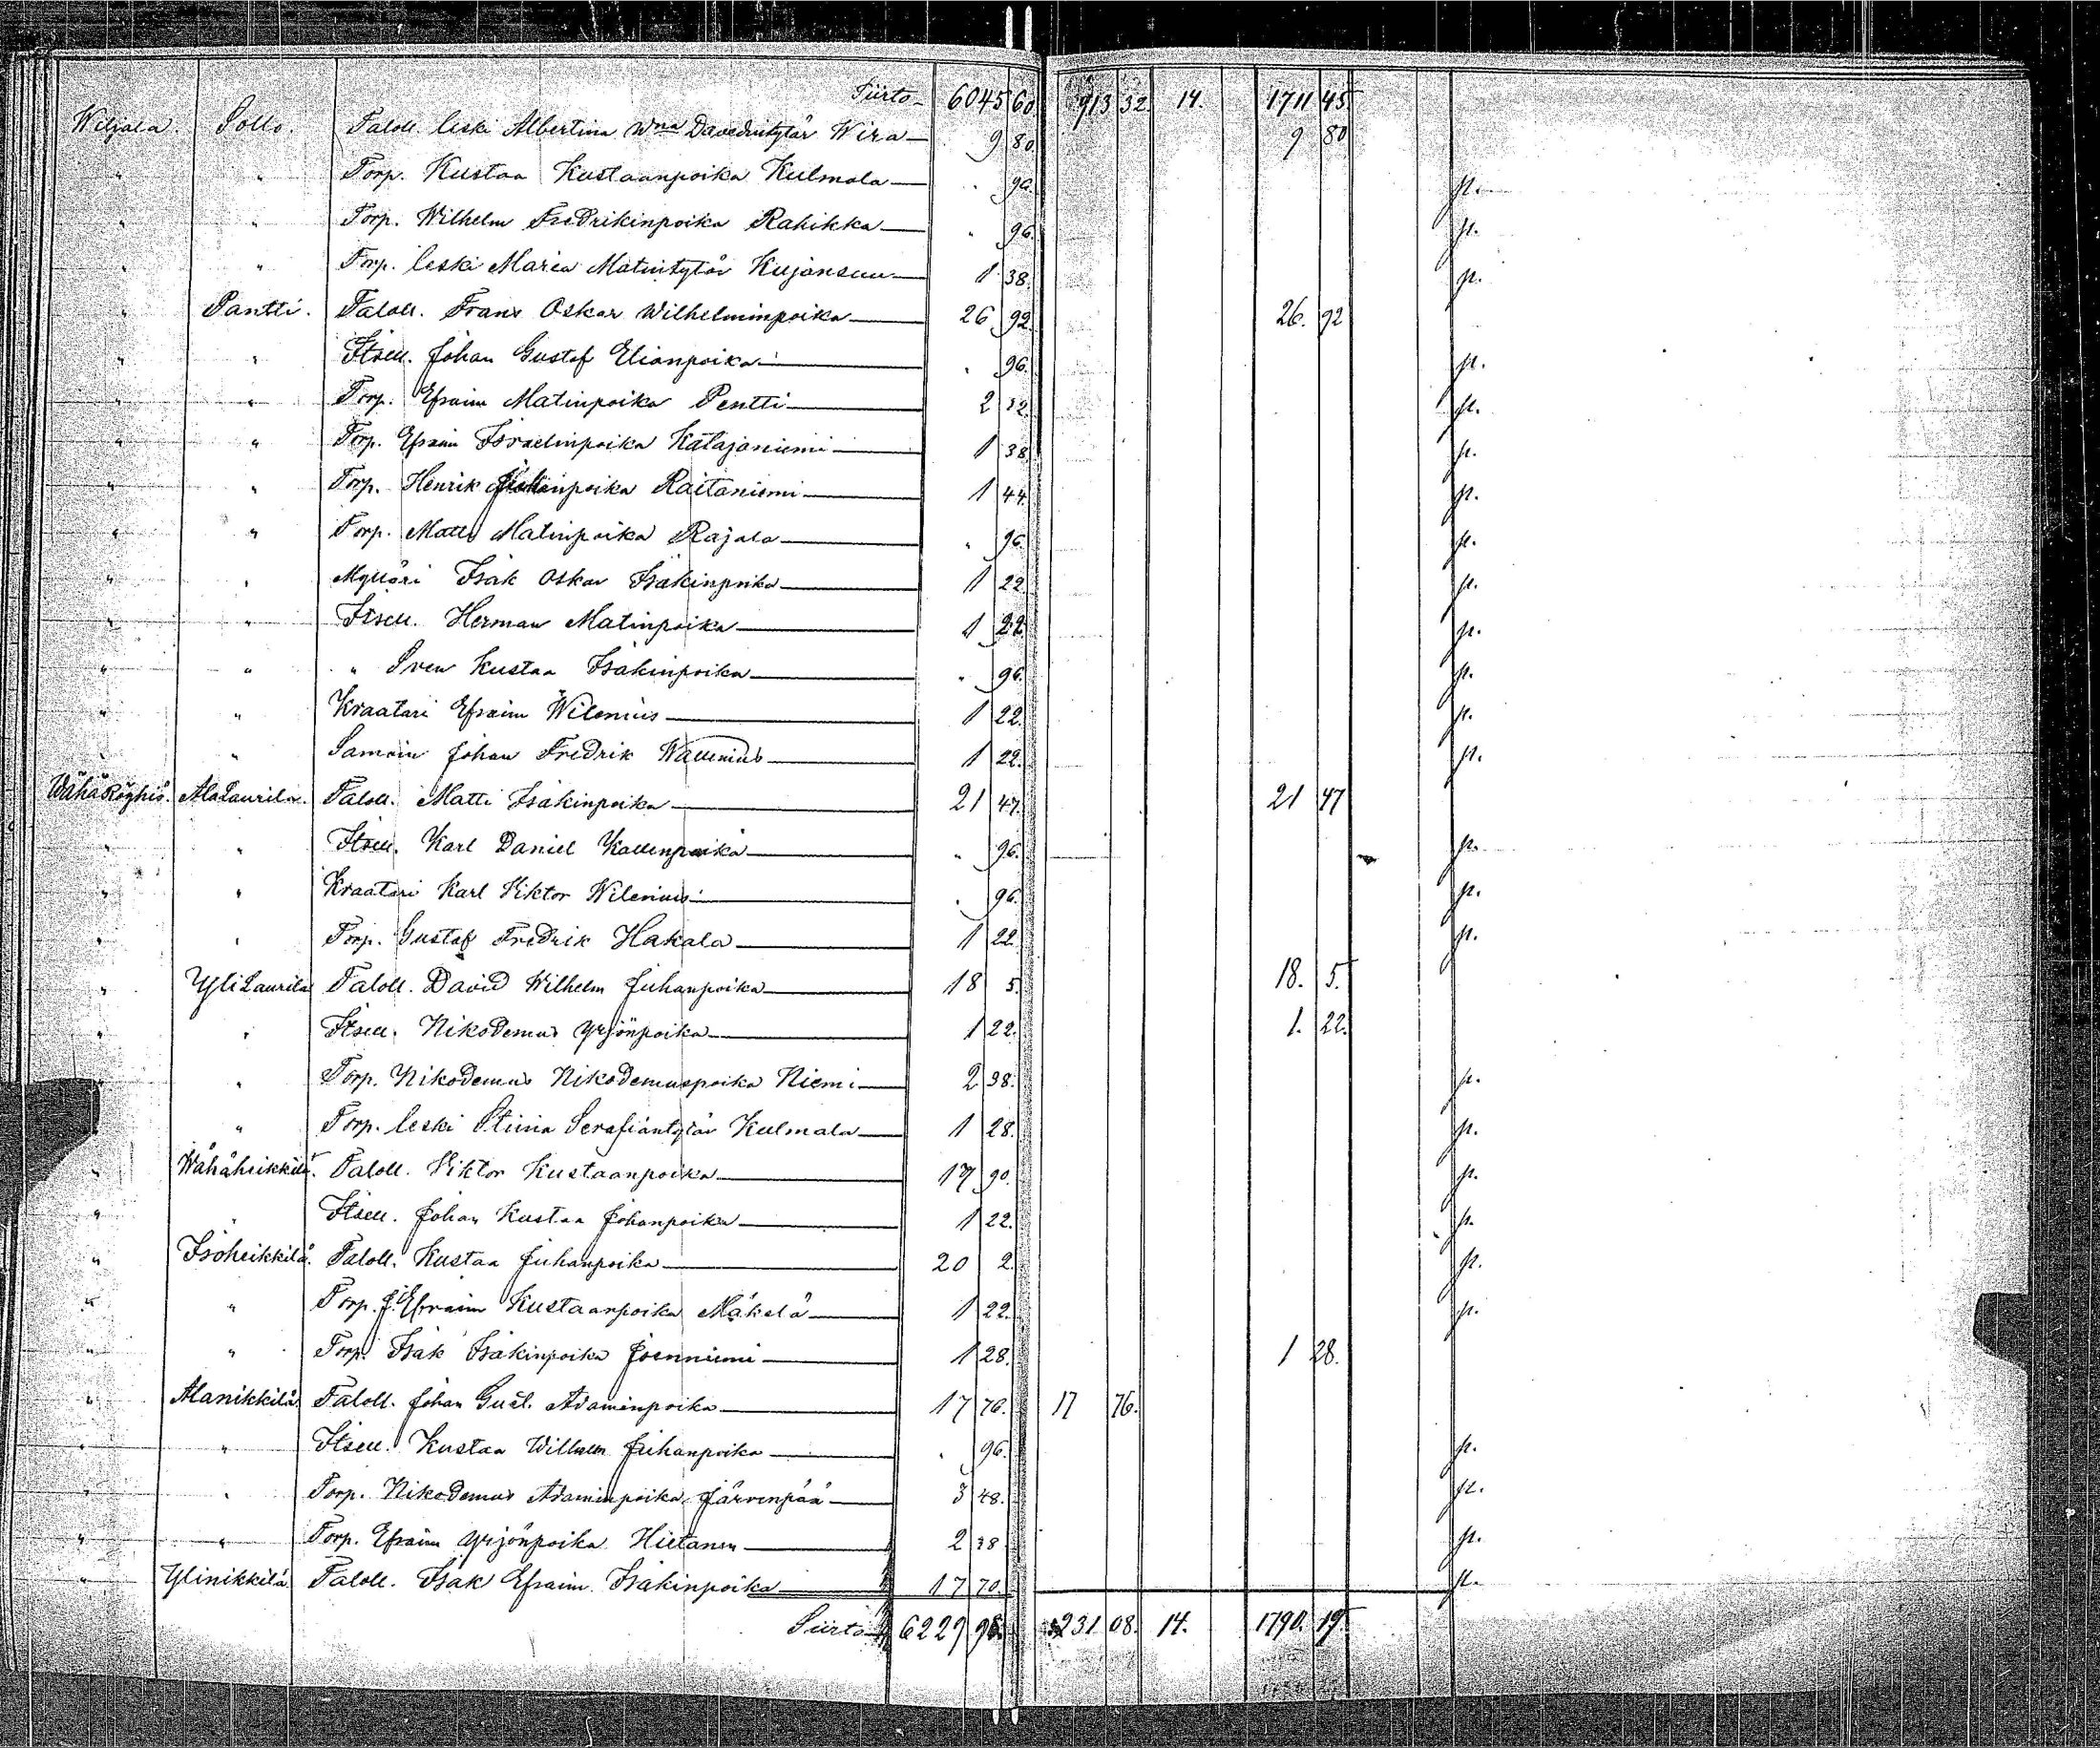 Siirto 6045 60 913 32. 14. 1711 45.
Wiljala. Sollo. Taloll. leski Albertina Wna Davedintytär Wira 9 80. 9 80
" " Torp. Kustaa Kustaanpoika Kulmala " 96. p.
" " Torp. Wilhelm Fredrikinpoika Rahikka " 96. p.
" " Torp. leski Maria Matintytär Kujansuu 1 38. p.
" Pantti. Taloll. Frans Oskar Wilhelminpoika 26 92. 26. 92
" " Itsell. Johan Gustaf Elianpoika " 96. p.
" " Torp. Efraim Matinpoika Pentti 2 32. p.
" " Torp. Efraim Israelinpoika Katajaniemi 1 38. p.
" " Torp. Henrik Raitaniemi 1 44. p.
" " Torp. Matti Matinpoika Rajala " 96. p.
" " Mylläri Isak Oskar Isakinpoika 1 22. p.
" " Itsell. Herman Matinpoika 1 22. p.
" " " Sven Kustaa Isakinpoika " 96. p.
" " Kraatari Efraim Wilenius 1 22. p.
" " Samoin Johan Fredrik Wallenius 1 22. p.
WähäRöyhiö. AlaLaurila. Taloll. Matti Isakinpoika 21 47. 21 47
" " Itsell. Karl Daniel Kallenpoika " 96. p.
" " Kraatari Karl Viktor Wilenius " 96. p.
" " Torp. Gustaf Fredrik Hakala 1 22. p.
" YliLaurila Taloll. David Wilhelm Juhanpoika 18 5. 18. 5.
" " Itsell. Nikodemus Yrjönpoika 1 22. 1. 22.
" " Torp. Nikodemus Nikodemuspoika Niemi 2 38. p.
" " Torp. leski Stiina Serafiantytär Kulmala 1 28. p.
" Wähäheikkilä. Taloll. Viktor Kustaanpoika 17 90. p.
" " Itsell. Johan Kustaa Johanpoika 1 22. p.
" Isoheikkilä. Taloll. Kustaa Juhanpoika 20 2. p.
" " Torp. J. Efraim Kustaanpoika Mäkelä 1 22. p.
" " Torp. Isak Isakinpoika Joenniemi 1 28. 1 28.
" Alanikkilä. Taloll. Johan Gust. Adaminpoika 17 76. 17 76.
" " Itsell. Kustaa Wilhelm Juhanpoika " 96. p.
" " Torp. Nikodemus Adaminpoika Järvenpää 3 48. p.
" " Torp. Efraim Yrjönpoika Hietanen 2 38 p.
" Ylinikkilä. Taloll. Isak Efraim Isakinpoika 17 70. p.
Siirto 6229 98. 231 08. 14. 1790. 19.